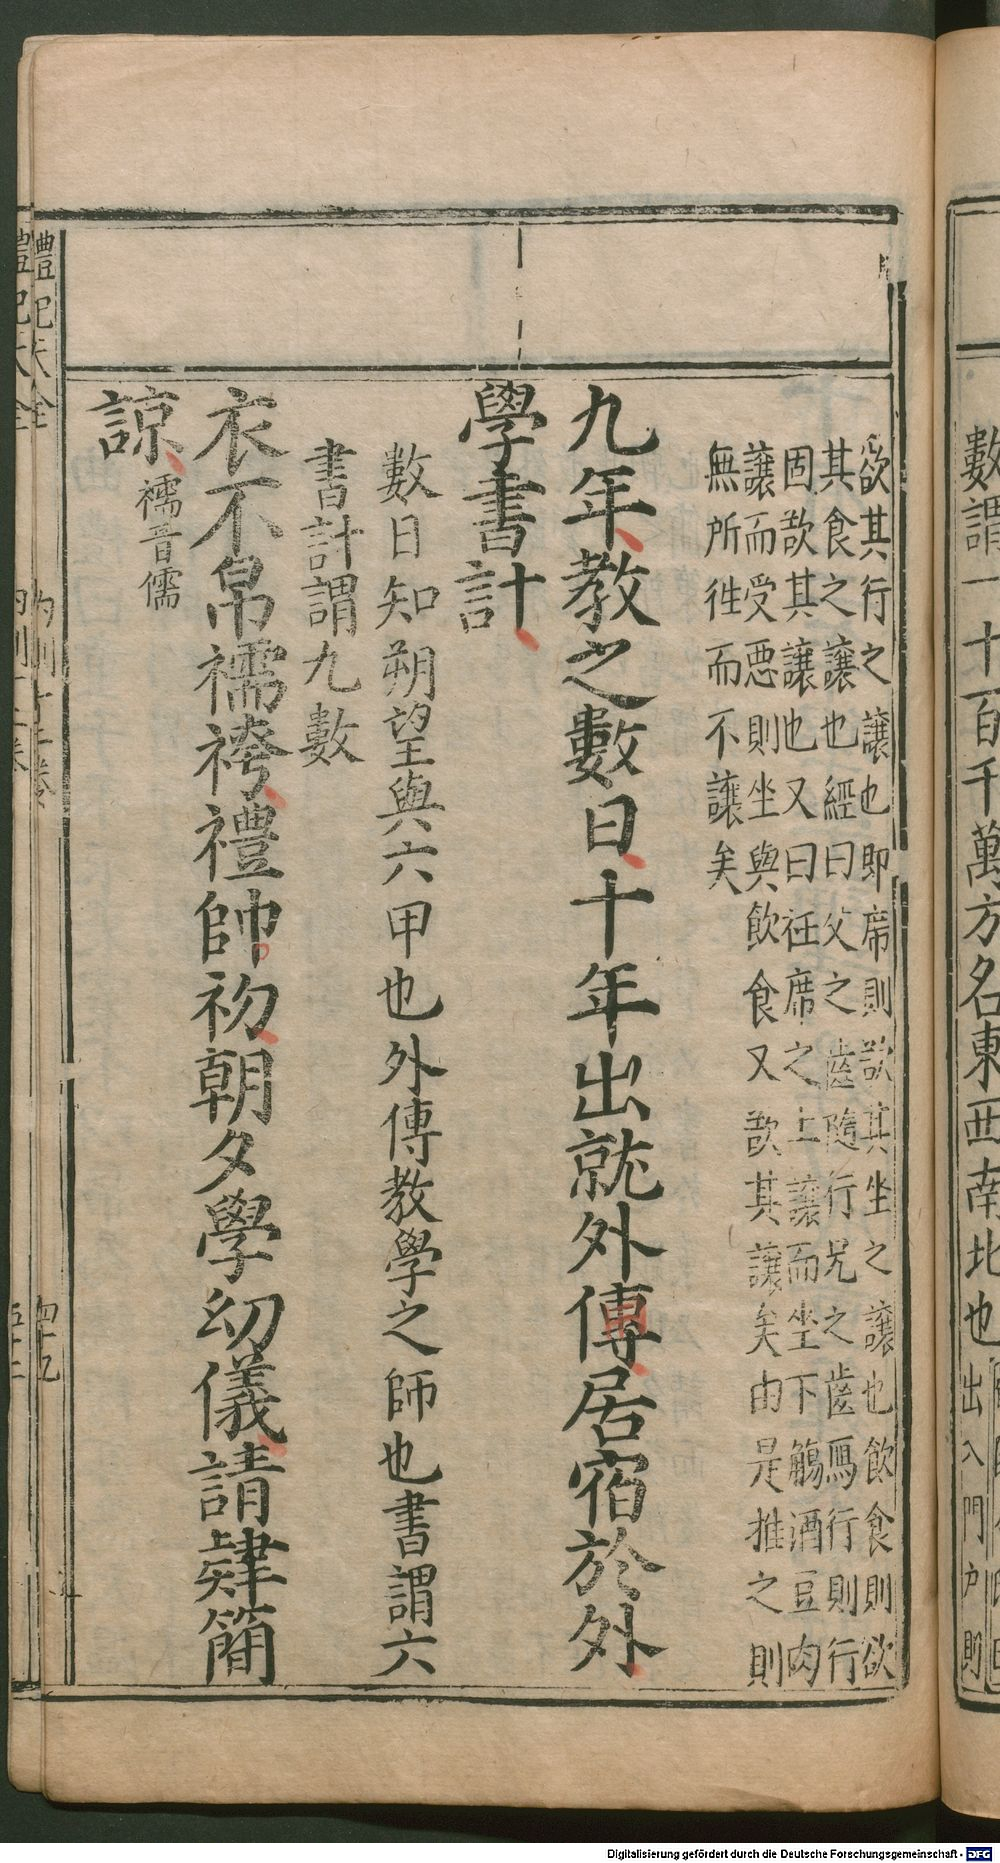 欲其行之讓也即席則欲其坐之讓也飲食則欲
其食之讓也經曰父之齒隨行兄之齒鴈行則行
固欲其讓也又曰衽席之上讓而坐下觴酒豆肉
讓而受惡則坐與飲食又欲其讓矣由是推之則
無所徃而不讓矣
九年教之數日十年出就外傳居宿於外
學書計
數日知朔望與六甲也外傳教學之師也書謂六
書計謂九數
衣不帛襦袴禮帥初朝夕學幼儀請肄簡
諒襦音儒
禮記大全
内則十二卷
四十九
數謂一十百千萬方名東西南北也出入門户則
Digitalisierung gefördert durch die Deutsche Forschungsgemeinschaft - DFG